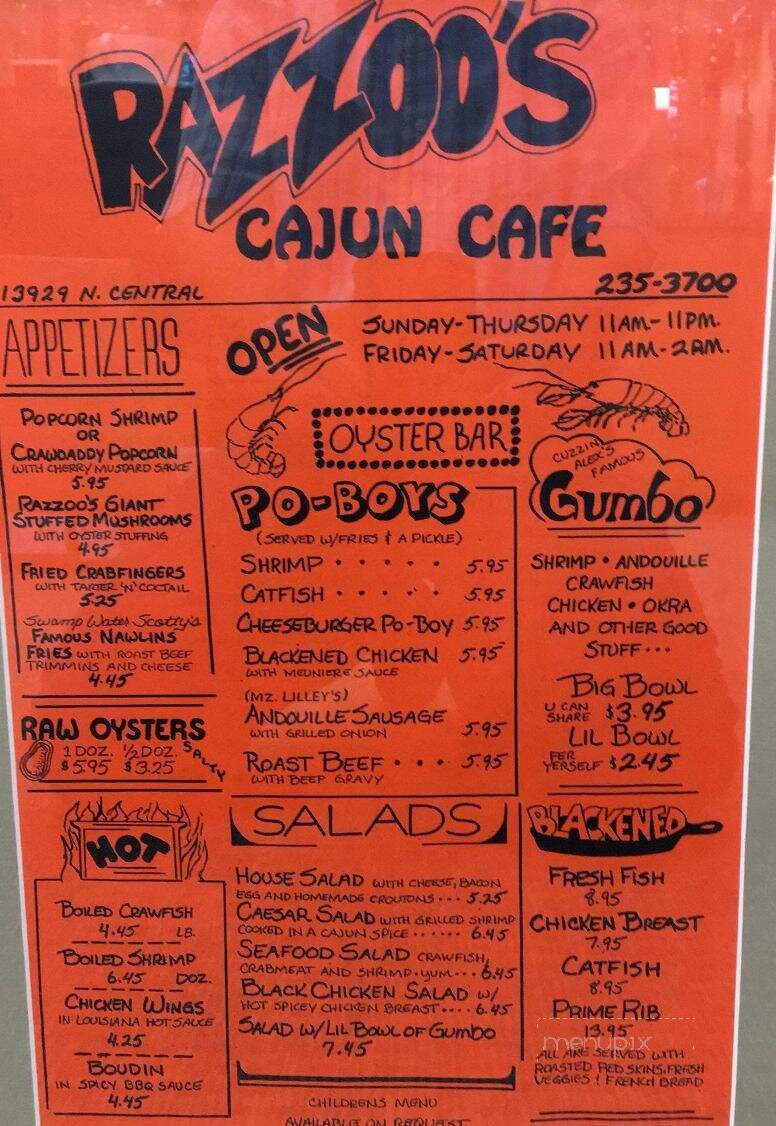 RAZZOO'S
CAJUN CAFE
13929 N. CENTRAL
235-3700
OPEN
SUNDAY-THURSDAY 11AM-11PM.
FRIDAY-SATURDAY 11AM-2AM.
APPETIZERS
POPCORN SHRIMP
OR
CRAWDADDY POPCORN
WITH CHERRY MUSTARD SAUCE
5.95
RAZZOO'S GIANT
STUFFED MUSHROOMS
WITH OYSTER STUFFING
4.95
FRIED CRABFINGERS
WITH TARTER 'N' COCTAIL
5.25
Swamp Water Scotty's
FAMOUS NAWLINS
FRIES WITH ROAST BEEF
TRIMMINS AND CHEESE
4.45
RAW OYSTERS
1 DOZ. 1/2 DOZ. SALTY
$5.95 $3.25
HOT
BOILED CRAWFISH
4.45 LB.
BOILED SHRIMP
6.45 DOZ.
CHICKEN WINGS
IN LOUISIANA HOT SAUCE
4.25
BOUDIN
IN SPICY BBQ SAUCE
4.45
OYSTER BAR
PO-BOYS
(SERVED W/FRIES & A PICKLE)
SHRIMP · · · · · 5.95
CATFISH · · · · · 5.95
CHEESEBURGER PO-BOY 5.95
BLACKENED CHICKEN 5.95
WITH MEUNIERE SAUCE
(MZ. LILLEY'S)
ANDOUILLE SAUSAGE
WITH GRILLED ONION 5.95
ROAST BEEF · · · 5.95
WITH BEEF GRAVY
SALADS
HOUSE SALAD WITH CHEESE, BACON
EGG AND HOMEMADE CROUTONS ··· 5.25
CAESAR SALAD WITH GRILLED SHRIMP
COOKED IN A CAJUN SPICE ······ 6.45
SEAFOOD SALAD CRAWFISH,
CRABMEAT AND SHRIMP·YUM··· 6.45
BLACK CHICKEN SALAD W/
HOT SPICEY CHICKEN BREAST···· 6.45
SALAD W/LIL BOWL OF GUMBO
7.45
CHILDRENS MENU
AVAILABLE ON REQUEST
CUZZIN
ALEX'S
FAMOUS
GUMBO
SHRIMP • ANDOUILLE
CRAWFISH
CHICKEN • OKRA
AND OTHER GOOD
STUFF···
BIG BOWL
U CAN
SHARE $3.95
LIL BOWL
FER
YERSELF $2.45
BLACKENED
FRESH FISH
8.95
CHICKEN BREAST
7.95
CATFISH
8.95
PRIME RIB
13.95
menupix
ALL ARE SERVED WITH
ROASTED REDSKINS, FRESH
VEGGIES & FRENCH BREAD